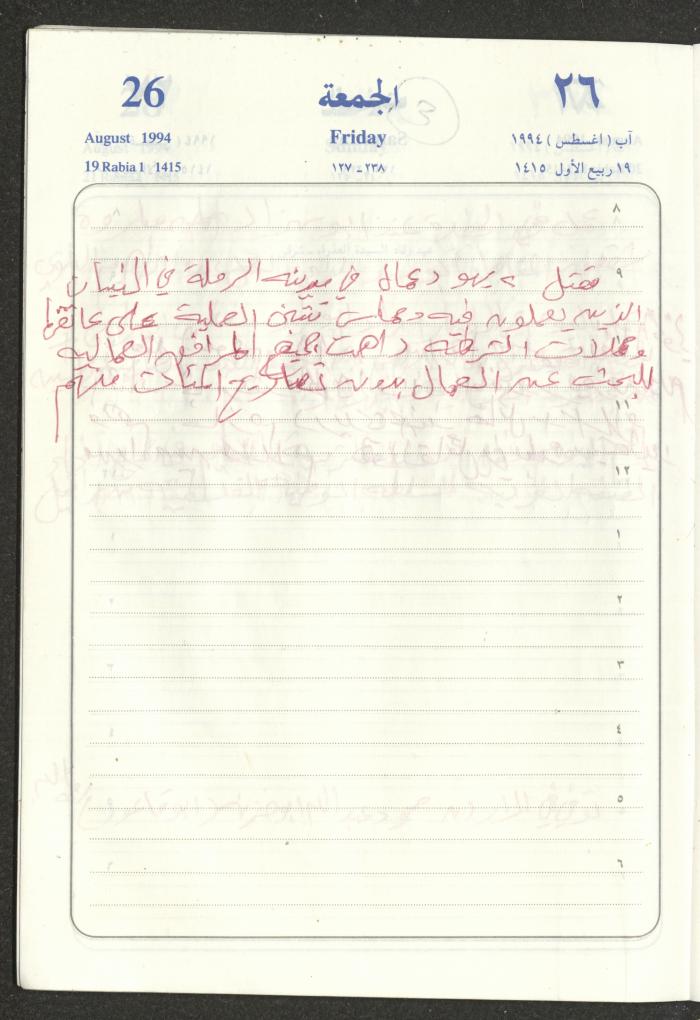 26 الجمعة ٢٦
August 1994 Friday آب ( اغسطس ) ١٩٩٤
19 Rabia 1 1415 ٢٣٨ - ١٢٧ ١٩ ربيع الأول ١٤١٥
٨
٩ مقتل ٢ يهود عمال في مدينه الرملة في البنيان
الذين يعملون فيه وحماس تتبنى العملية على عاتقها
وحملات الشرطه داهمت جميع المرافق العماليه
للبحث عن العمال بدون تصاريح المئات منهم
١١
١٢
١
٢
٣
٤
٥
٦